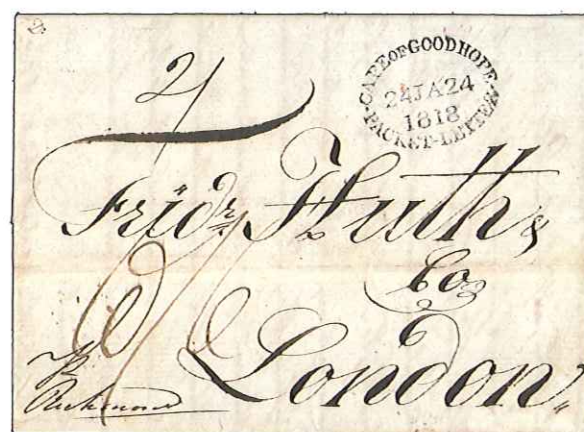 2/
CAPE OF GOOD HOPE
24JA24
1818
PACKET-LETTER
Fridr. Huth &
Co
London
Richmond